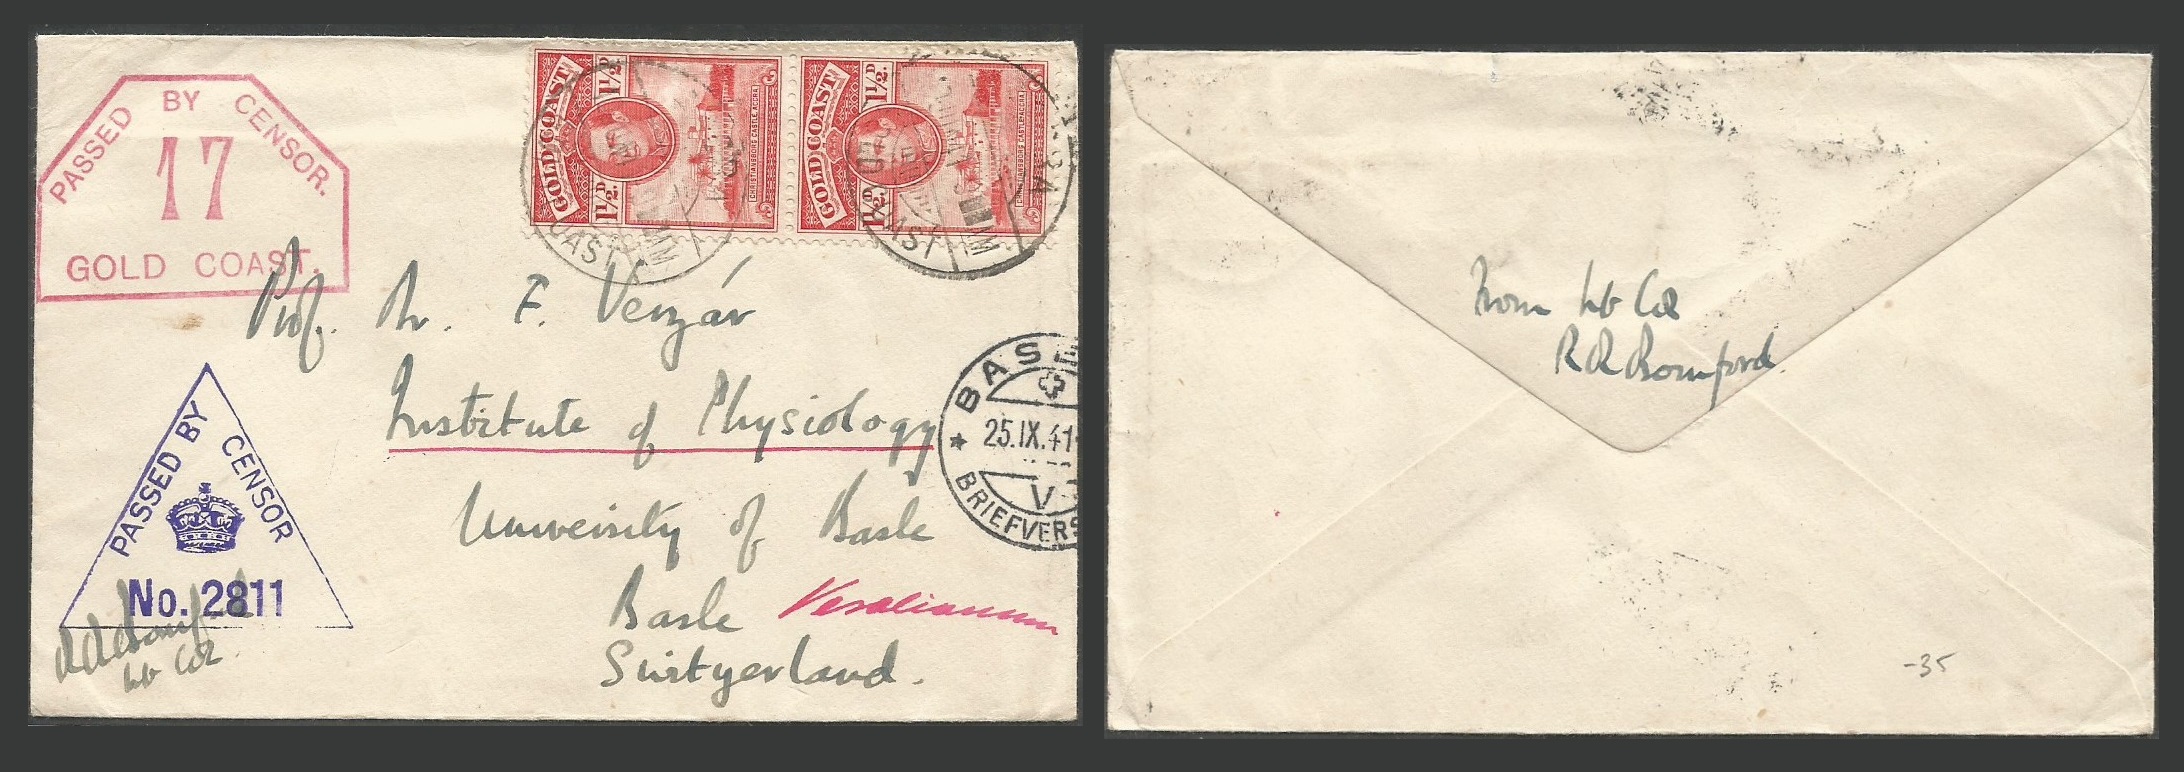 PASSED BY CENSOR.
17
GOLD COAST.
GOLD COAST
1½D
1½D
CHRISTIANSBORG CASTLE, ACCRA
GOLD COAST
1½D
1½D
CHRISTIANSBORG CASTLE, ACCRA
COAST
COAST
Prof. Dr. F. Verzár
Institute of Physiology
University of Basle
Basle Vesalianum
Switzerland.
BASE
25.IX.41
V
BRIEFVERS
PASSED BY CENSOR
No. 2811
Lt Col
From Lt Col
R R Bomford.
-35